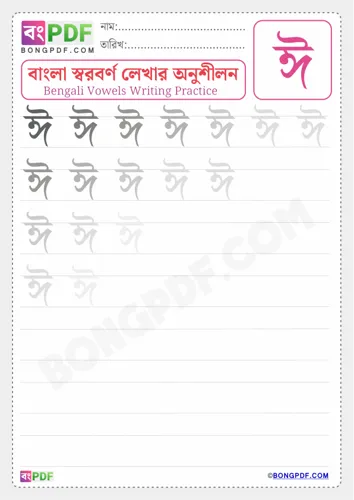 বংPDF
BONGPDF.COM
নাম:
তারিখ:
বাংলা স্বরবর্ণ লেখার অনুশীলন
Bengali Vowels Writing Practice
ঈ
ঈ ঈ ঈ ঈ ঈ ঈ ঈ
ঈ ঈ ঈ ঈ ঈ
ঈ ঈ ঈ
ঈ ঈ
BONGPDF.COM
বংPDF
©BONGPDF.COM